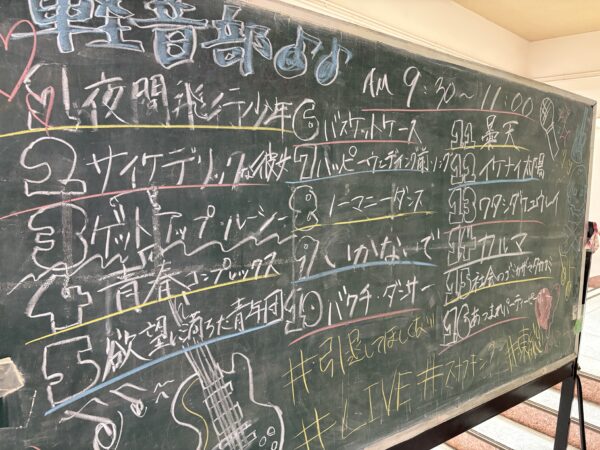 軽音部♪♪
AM 9:30～11:00
1 夜間飛行少年
2 サイケデリックな彼女
3 ゲットアップ・ルーシー
4 青春コンプレックス
5 欲望に満ちた青年団
6 バスケットケース
7 ハッピーウェディング前ソング
8 ノーマニーダンス
9 いかないで
10 バクチ・ダンサー
11 曇天
12 イケナイ太陽
13 ワタシダケユウレイ
14 カルマ
16 あつまれ!パーティーピーポー
#引退してほしくない
#LIVE #スナッチ